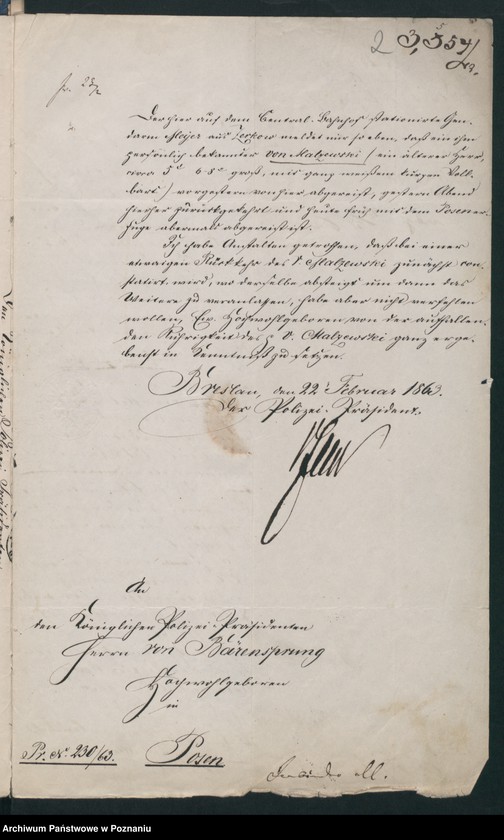 2 3,354/63.
pr. 23/2
Der hier auf dem Central-Bahnhof stationirte Gen-
darm Meyer aus Zerkow meldet mir so eben, daß ein ihm
persönlich bekannter von Malzewski (ein älterer Herr,
circa 5' 6-8" groß, mit ganz weißem kurzen Voll-
bart) vorgestern von hier abgereist, gestern Abend
hierher zurückgekehrt und heute früh mit dem Posener
Zuge abermals abgereist ist.
Ich habe Anstalten getroffen, daß bei einer
etwaigen Rückkehr des v. Malzewski zunächst con-
statirt wird, wo derselbe absteigt um dann das
Weitere zu veranlassen, habe aber nicht verfehlen
wollen, Ew. Hochwohlgeboren von der auffallen-
den Rührigkeit des p. v. Malzewski ganz erge-
benst in Kenntniß zu setzen.
Breslau, den 22 Februar 1863.
Der Polizei-Präsident.
An
den Königlichen Polizei-Präsidenten
Herrn von Bärensprung
Hochwohlgeboren
in
Pr. No 230/63. Posen
Archiwum Państwowe w Poznaniu